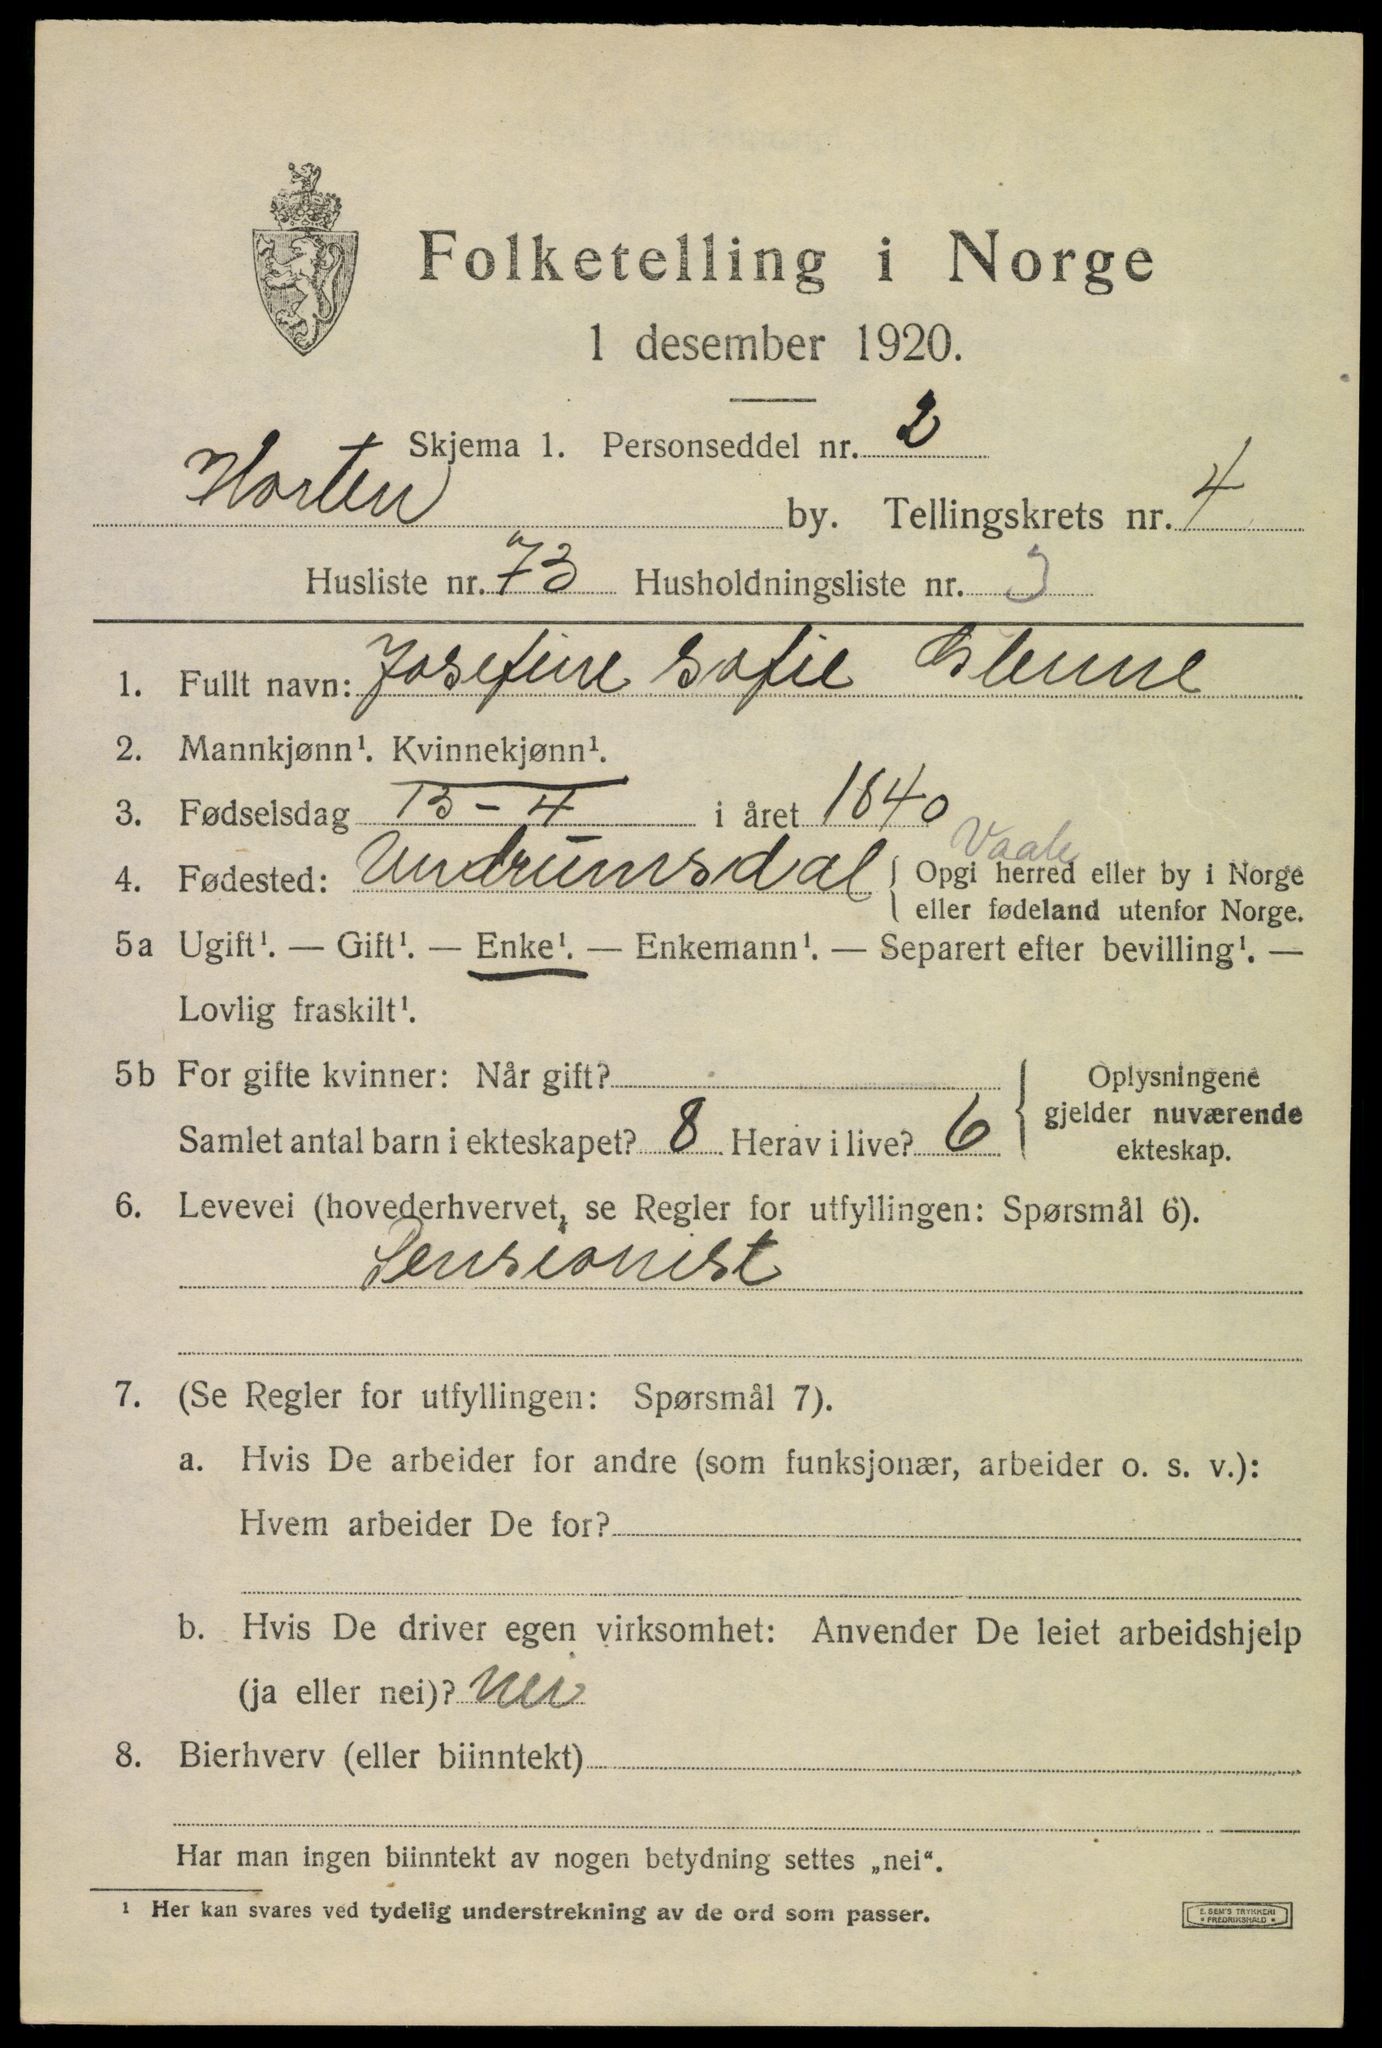 Folketelling i Norge
1 desember 1920.
Skjema 1. Personseddel nr. 2
Horten by. Tellingskrets nr. 4
Husliste nr. 73 Husholdningsliste nr. 3
1. Fullt navn: Josefine Sofie Glenne
2. Mannkjønn¹. Kvinnekjønn¹.
3. Fødselsdag 13-4 i året 1840
Vaale
4. Fødested: Undrumsdal { Opgi herred eller by i Norge
eller fødeland utenfor Norge.
5a Ugift¹. — Gift¹. — Enke¹. — Enkemann¹. — Separert efter bevilling¹. —
Lovlig fraskilt¹.
5b For gifte kvinner: Når gift? { Oplysningene
gjelder nuværende
ekteskap.
Samlet antal barn i ekteskapet? 8 Herav i live? 6
6. Levevei (hovederhvervet, se Regler for utfyllingen: Spørsmål 6).
Pensionist
7. (Se Regler for utfyllingen: Spørsmål 7).
a. Hvis De arbeider for andre (som funksjonær, arbeider o. s. v.):
Hvem arbeider De for?
b. Hvis De driver egen virksomhet: Anvender De leiet arbeidshjelp
(ja eller nei)? nei
8. Bierhverv (eller biinntekt)
Har man ingen biinntekt av nogen betydning settes „nei“.
¹ Her kan svares ved tydelig understrekning av de ord som passer.
E. SEM'S TRYKKERI
* FREDRIKSHALD *